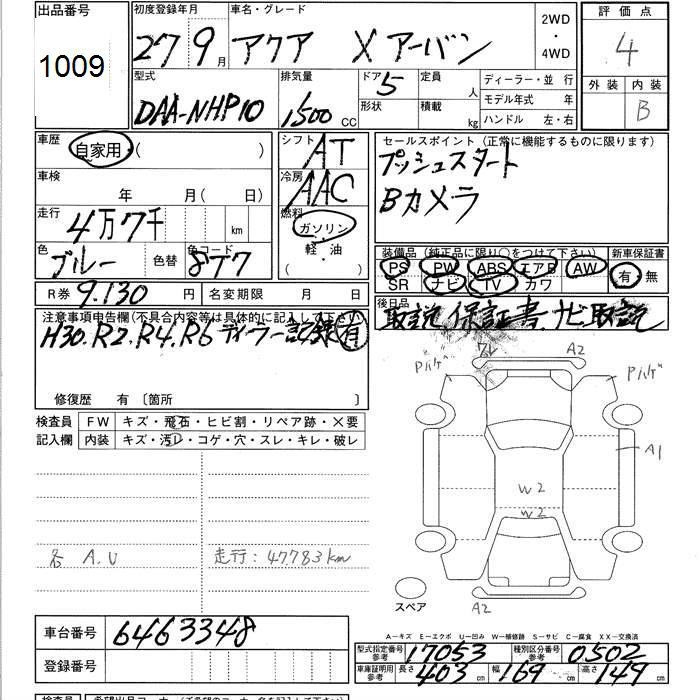 出品番号 初度登録年月 車名・グレード 2WD ・ 4WD 評価点
1009 27 9月 アクア X アーバン 4
型式 排気量 ドア 5 定員 人 ディーラー・並 行 外装 内装
DAA-NHP10 1500 CC 形状 積載 kg モデル年式 年 B
ハンドル 左・右
車歴 自家用・( ) シフト AT セールスポイント (正常に機能するものに限ります)
車検 年 月( 日) 冷房 AAC プッシュスタート
走行 4万7千 km 燃料 ガソリン・軽・油 ( ) Bカメラ
色 ブルー 色替 色コード 8T7 装備品 (純正品に限り○をつけて下さい) 新車保証書
PS PW ABS エアB AW 有・無
SR ナビ TV カワ
R券 9.130 円 名変期限 月 日 後日品
注意事項申告欄(不具合内容等は具体的に記入して下さい) 取説 保証書、ナビ取説
H30.R2.R4.R6 ディーラー記録有
修復歴 有〔箇所 〕
検査員記入欄 FW キズ・飛石・ヒビ割・リペア跡・×要
内装 キズ・汚レ・コゲ・穴・スレ・キレ・破レ
A2
Pハゲ Pハゲ
A1
W2
W2
各 A.U 走行:47.783km
スペア A2
A－キズ E－エクボ U－凹み W－補修跡 S－サビ C－腐食 XX－交換済
車台番号 6463348 型式指定番号参考 17053 種別区分番号参考 0502
登録番号 車庫証明用参考 長さ 403 cm 幅 169 cm 高さ 149 cm